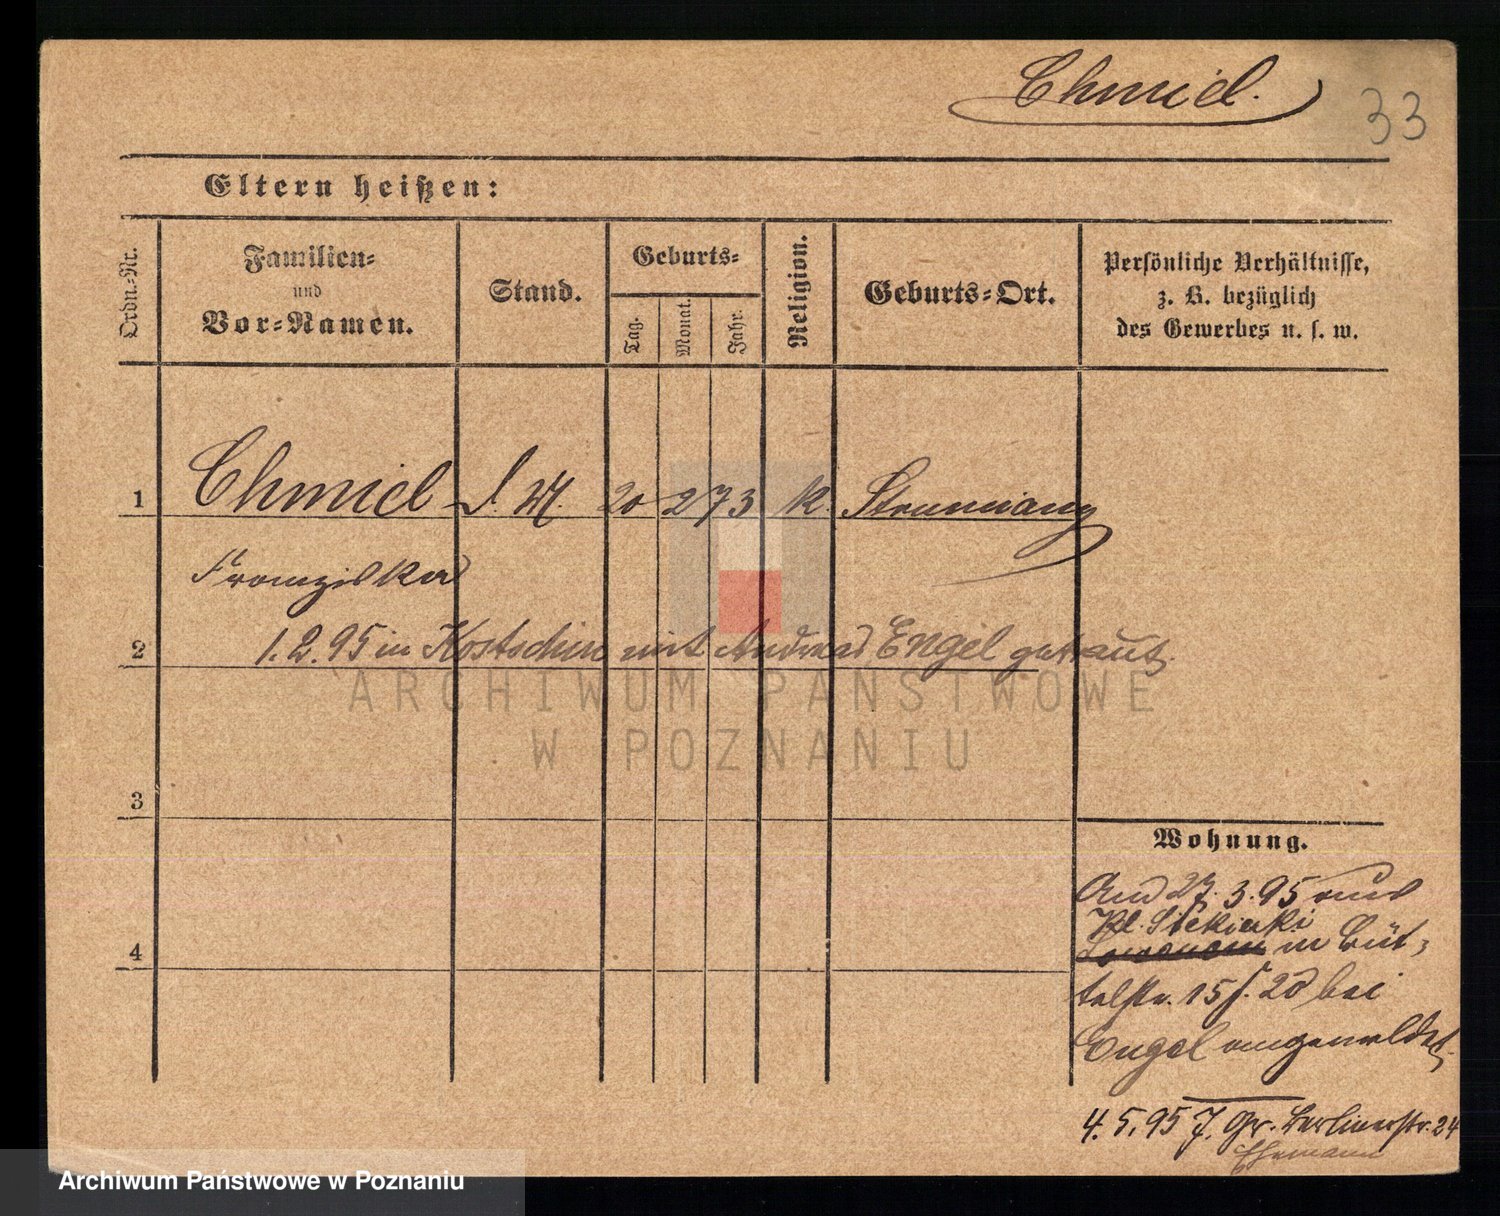 Chmiel.
33
Eltern heißen:
Ordn.-Nr.
Familien-
und
Vor-Namen.
Stand.
Geburts-
Tag.
Monat.
Jahr.
Religion.
Geburts-Ort.
Persönliche Verhältnisse,
z. B. bezüglich
des Gewerbes u. s. w.
1 Chmiel 20 2 73 k.
Franziska
2 1.2.95 in Kostschin mit Andreas Engel getraut.
ARCHIWUM PAŃSTWOWE
W POZNANIU
3
Wohnung.
27.3.95 aus
Kl. Siekierki
4
in Büt-
telstr. 15 bei
Engel angemeldet.
4.5.95 Gr. Berlinerstr. 24
Ehemann
Archiwum Państwowe w Poznaniu